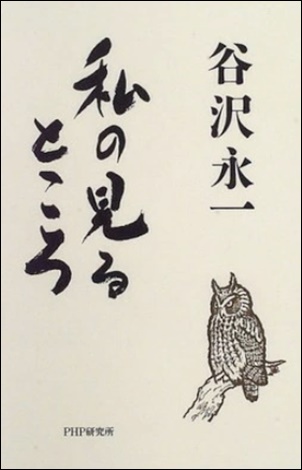 谷沢永一
私の見る
ところ
PHP研究所